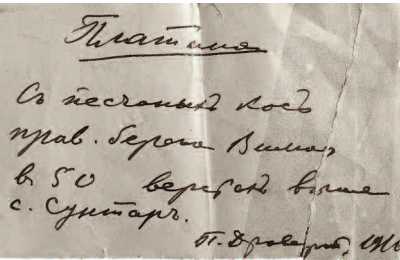 Платина
Съ песчаныхъ косъ
прав. берега Вилюя
в 50 верстахъ выше
с. Сунтаръ.
П. Драверт, 191